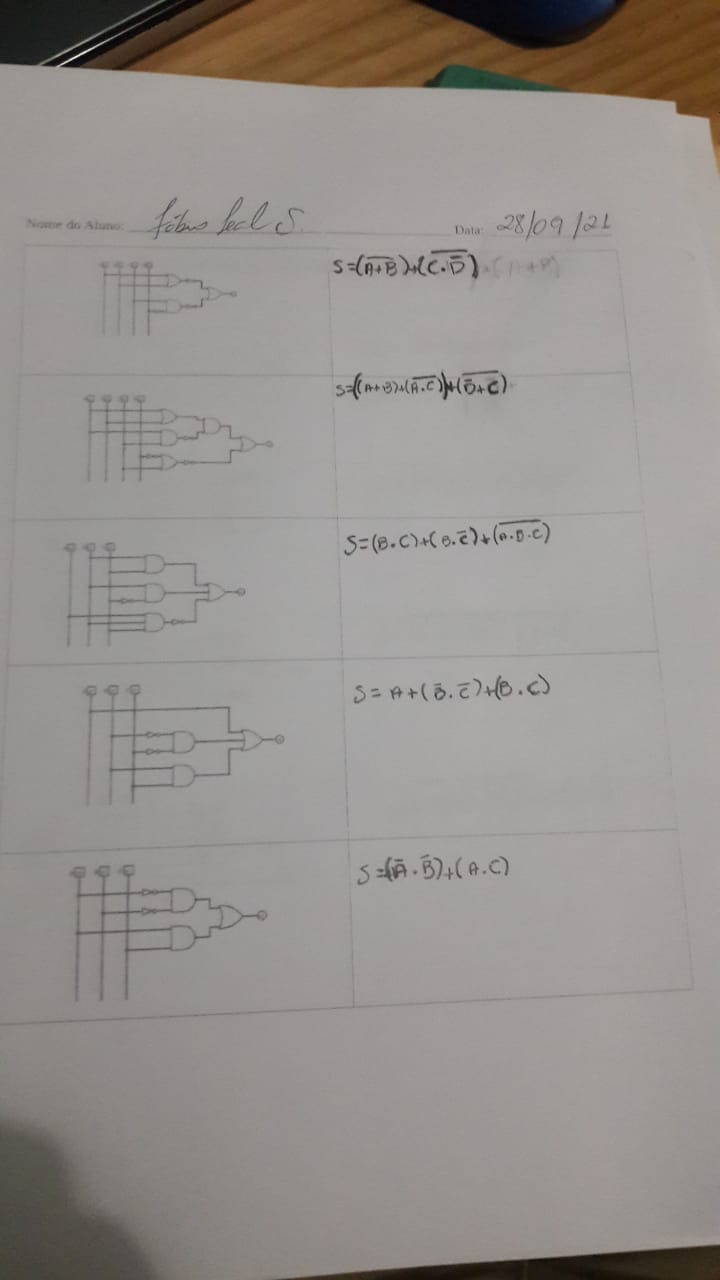 Nome do Aluno: Fábio Leal S. Data: 28/09/21
S=(A̅+̅B̅)+(C̅.̅D̅̅)
S=((A+B)+(A̅.̅C̅))+(D̅̅+̅C̅)
S=(B.C)+(B.C̅)+(A̅.̅B̅.̅C̅)
S=A+(B̅.C̅)+(B.C)
S=(A̅.B̅)+(A.C)